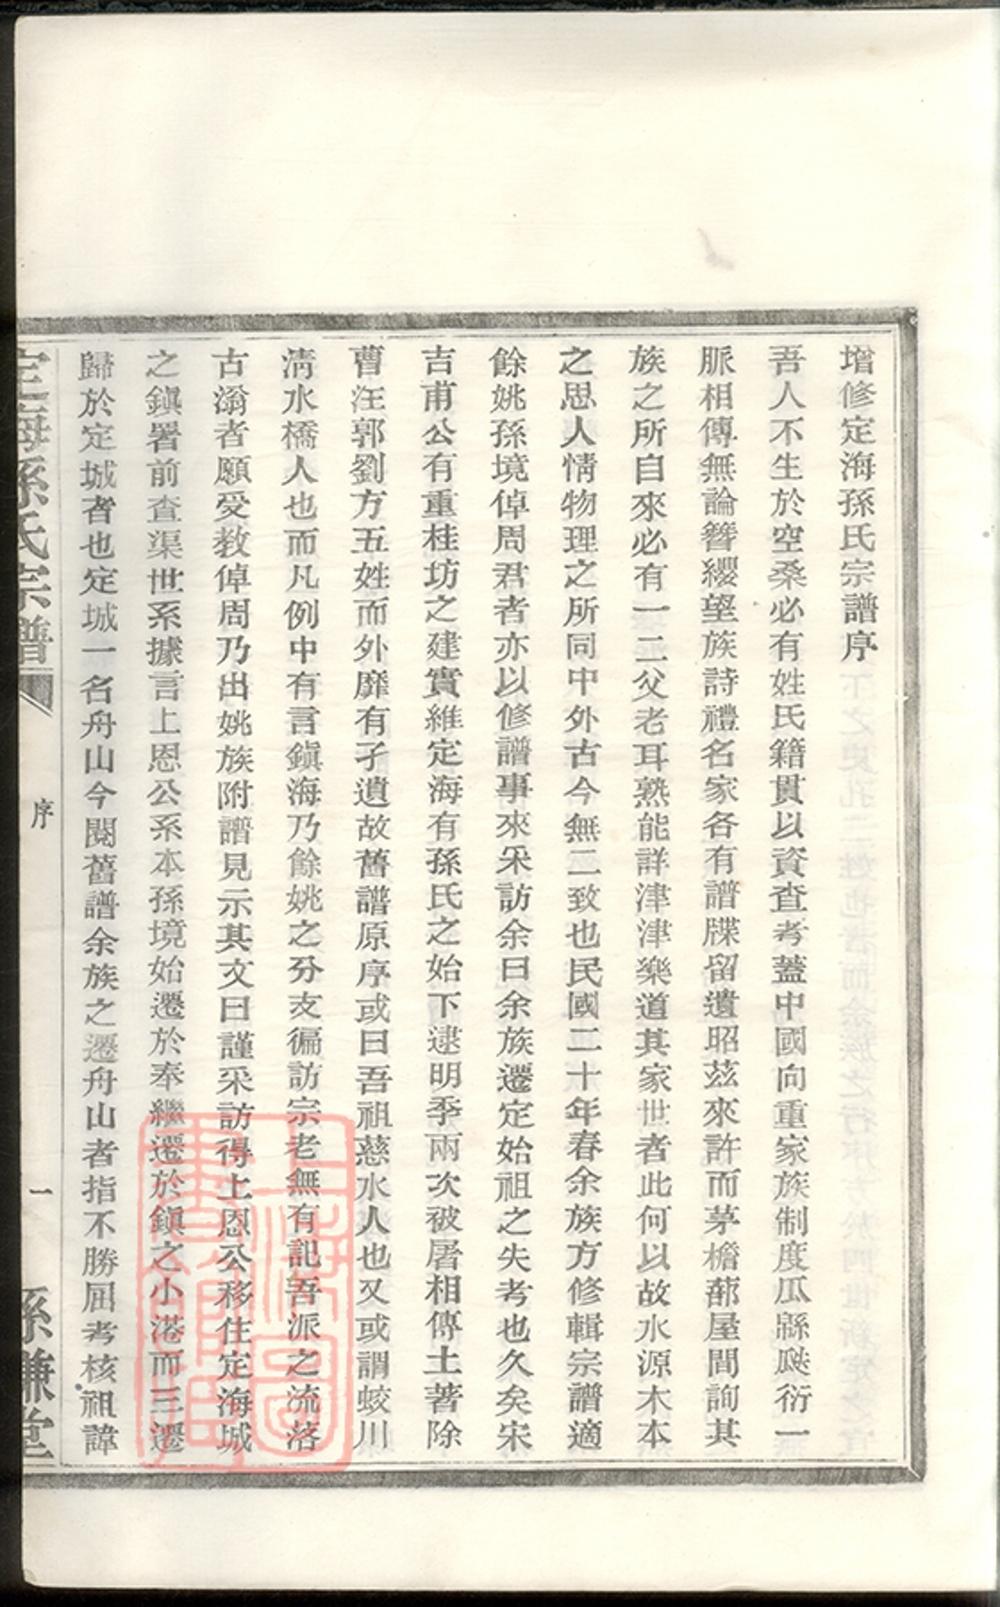 增修定海孫氏宗譜序
吾人不生於空桑必有姓氏籍貫以資查考蓋中國向重家族制度瓜緜瓞衍一
脈相傳無論簪纓望族詩禮名家各有譜牒留遺昭茲來許而茅檐蔀屋間詢其
族之所自來必有一二父老耳熟能詳津津樂道其家世者此何以故水源木本
之思人情物理之所同中外古今無二致也民國二十年春余族方修輯宗譜適
餘姚孫境倬周君者亦以修譜事來采訪余曰余族遷定始祖之失考也久矣宋
吉甫公有重桂坊之建實維定海有孫氏之始下逮明季兩次被屠相傳土著除
曹汪郭劉方五姓而外靡有孑遺故舊譜原序或曰吾祖慈水人也又或謂蛟川
清水橋人也而凡例中有言鎮海乃餘姚之分支徧訪宗老無有記吾派之流落
古滃者願受教倬周乃出姚族附譜見示其文曰謹采訪得上恩公移住定海城
之鎮署前查渠世系據言上恩公系本孫境始遷於奉繼遷於鎮之小港而三遷
歸於定城者也定城一名舟山今閱舊譜余族之遷舟山者指不勝屈考核祖諱
定海孫氏宗譜
序
一
孫謙堂
上海圖書館藏